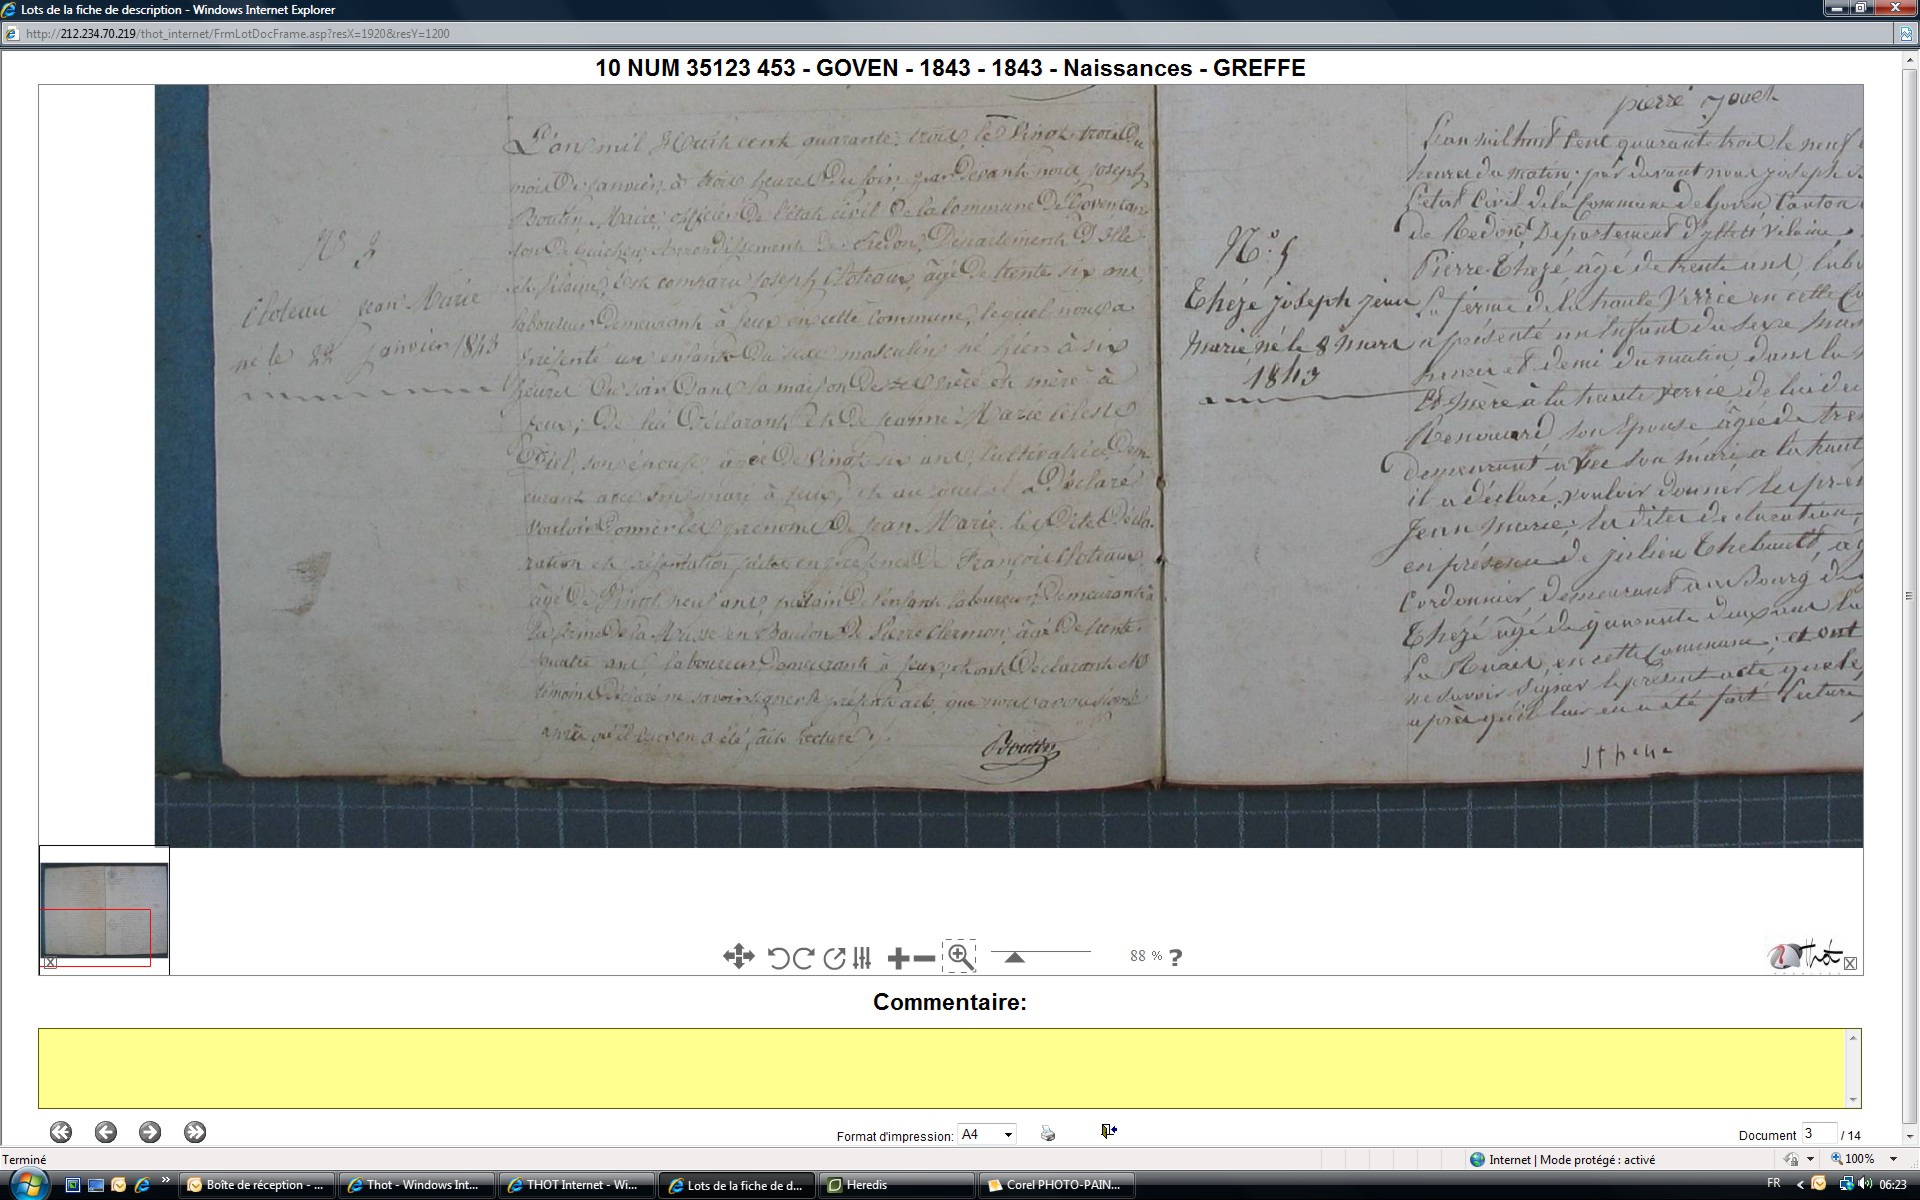 Lots de la fiche de description - Windows Internet Explorer
http://212.234.70.219/thot_internet/FrmLotDocFrame.asp?resX=1920&resY=1200
10 NUM 35123 453 - GOVEN - 1843 - 1843 - Naissances - GREFFE
L'an mil Huit cent quarante-trois, le Vingt-trois du
mois de Janvier, à trois heures du soir, par devant nous, Joseph
Boutin, Maire, officier de l'état civil de la Commune de Goven can-
ton de Guichen, Arrondissement de Redon, Département D'Ille
et Vilaine, Est comparu Joseph Cloteaux, âgé de trente six ans,
laboureur demeurant à feux en cette Commune, lequel nous a
présenté un enfant du sexe masculin né hier à six
heures du soir dans la maison de ses père et mère à
feux, De lui Déclarant et de Jeanne Marie Céleste
son épouse, agée de Vingt six ans, Cultivatrice, Dem-
eurant avec son mari à feux, et auquel il a Déclaré
Vouloir Donner les prénoms de Jean Marie. les Dites Décla-
ration et présentation faites en présence de François Cloteaux
âgé de Vingt neuf ans, parrain de l'enfant laboureur, demeurant à
la ferme de la en Baulon & Pierre Clermon, âgé de trente-
quatre ans, laboureur demeurant à feux, et ont Déclarant et
témoins Déclaré ne savoir signer le présent acte, que nous avons signé
après qu'il leur en a été fait lecture.
Boutin
N° 3
Cloteau Jean Marie
né le 22 Janvier 1843
pierre Jouet
L'an mil huit Cent quarante trois le neuf
heures du matin. par devant nous joseph
L'état Civil de la Commune de Goven Canton
de Redon, Departement d'ylle et vilaine,
Pierre Thezé âgé de trente ans, labo
la ferme de la haute Verrie en cette Co
a présenté un Enfant du sexe mas
heures et demi du matin, dans la
Et Mère à la haute verrie de lui de
Renouard son Epouse âgée de tre
demeurant avec son mari a la haut
il a déclaré vouloir donner les pré
Jean Marie; les dites declaration,
en présence de julien Thebault, ag
Cordonnier demeurant au Bourg de
Thézé âgé de quarante deux ans la
en cette Commune; et ont
ne savoir signer le présent acte que le
après qu'il leur en a été fait Lecture
N° 5
Thézé joseph jean
Marie né le 8 mars
1843
88 % ?
Thot
Commentaire:
Format d'impression: A4
Document 3 / 14
Terminé
Internet | Mode protégé : activé
100%
Boîte de réception - ...
Thot - Windows Int...
THOT Internet - Wi...
Lots de la fiche de d...
Heredis
Corel PHOTO-PAIN...
FR
06:23